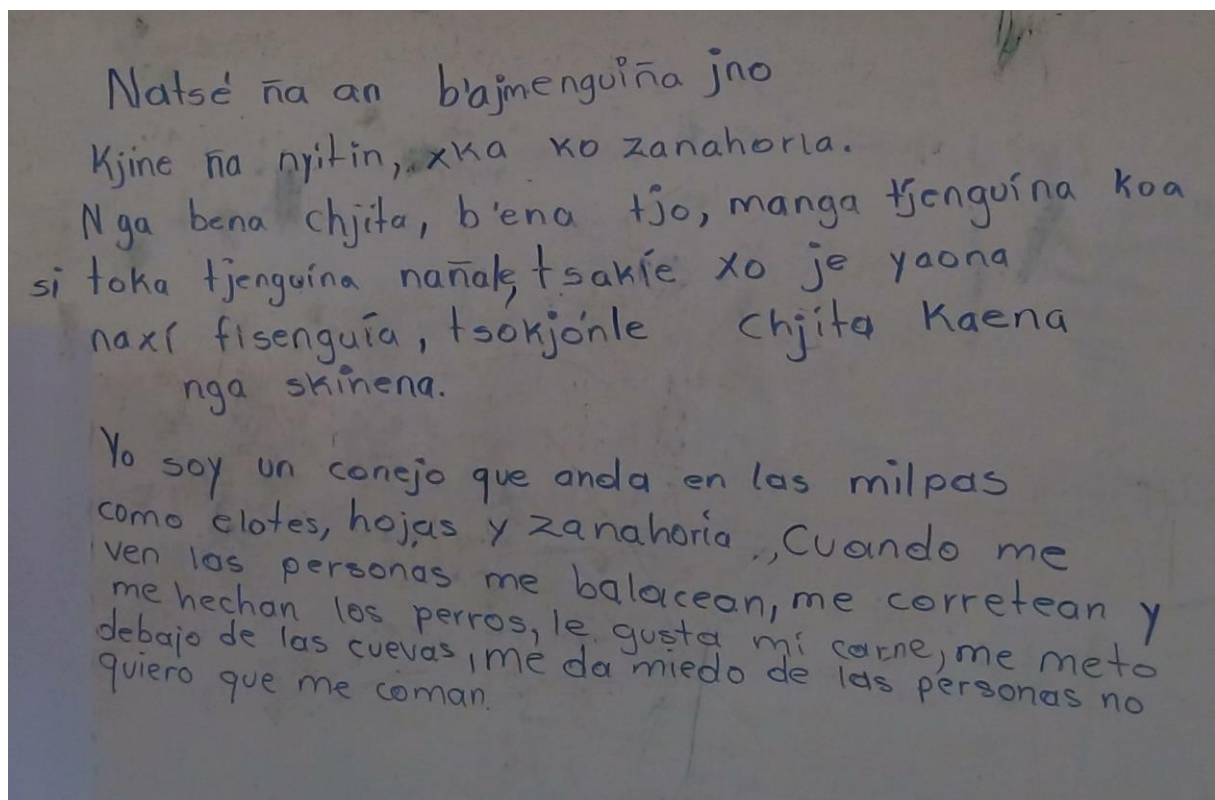 Natsé ña an b'ajmenguiña jno
Kjine ña nyitin, xka ko zanahoria.
Nga bena chjita, b'ena tjo, manga tjenguína koa
si toka tjenguína nañale, tsakíe xo je yaona
naxí fisenguía, tsokjónle chjita Kaena
nga skinena.
Yo soy un conejo que anda en las milpas
como elotes, hojas y zanahoria., Cuando me
ven las personas me balacean, me corretean y
me hechan los perros, le gusta mi carne, me meto
debajo de las cuevas, me da miedo de las personas no
quiero que me coman.